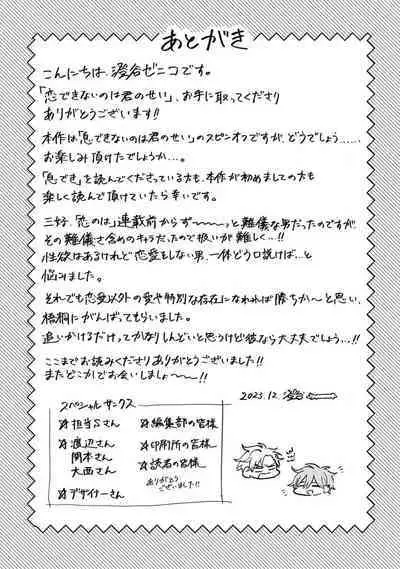 あとがき
こんにちは、澄谷ゼニコです。
「恋できないのは君のせい」、お手に取ってくださり
ありがとうございます!!
本作は「息できないのは君のせい」のスピンオフですが、どうでしょう……
お楽しみ頂けたでしょうか…。
「息でき」を読んでくださっている方も、本作が初めましての方も
楽しく読んで頂けていたら幸いです。
三好、「恋のは」連載前からず〜〜〜っと難儀な男だったのですが
その難儀さ含めのキャラだったので扱いが難しく…!!
性欲はあるけれど恋愛をしない男、一体どうロ説けば…と
悩みました。
それでも恋愛以外の愛や特別な存在になれれば勝ちか〜と思い、
梧桐にがんばってもらいました。
追いかけるだけってかなりしんどいと思うけど彼なら大丈夫でしょう…!!
ここまでお読みくださりありがとうございました!!
またどこかでお会いしましょ〜〜〜!!
2023.12. 澄谷
スペシャルサンクス
☆担当Sさん
☆渡辺さん
関本さん
大西さん
☆デザイナーさん
☆編集部の皆様
☆印刷所の皆様
☆読者の皆様
ありがとう
ございました!!